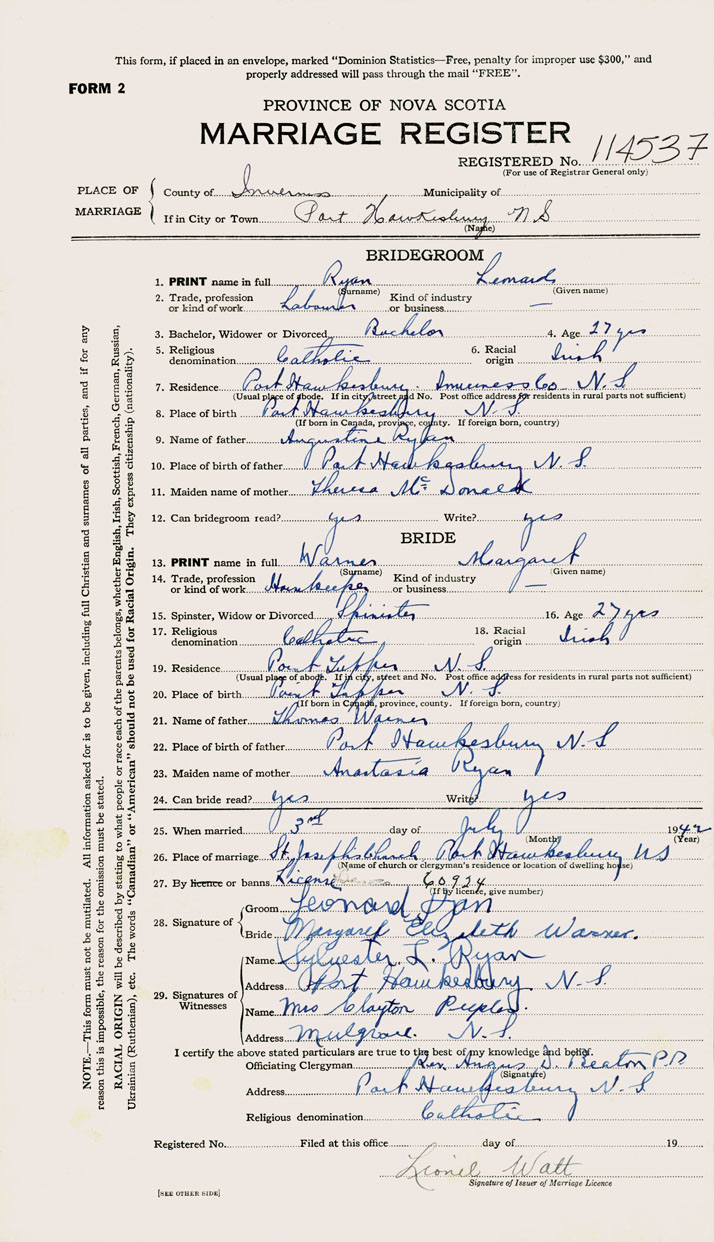 This form, if placed in an envelope, marked "Dominion Statistics—Free, penalty for improper use $300," and
properly addressed will pass through the mail "FREE".
FORM 2
PROVINCE OF NOVA SCOTIA
MARRIAGE REGISTER
REGISTERED No. 114537
(For use of Registrar General only)
PLACE OF MARRIAGE
County of Inverness Municipality of
If in City or Town Port Hawkesbury N S
(Name)
BRIDEGROOM
1. PRINT name in full Ryan Leonard
(Surname) (Given name)
2. Trade, profession or kind of work Labourer Kind of industry or business —
3. Bachelor, Widower or Divorced Bachelor 4. Age 27 yrs
5. Religious denomination Catholic 6. Racial origin Irish
7. Residence Port Hawkesbury. Inverness Co N. S.
(Usual place of abode. If in city, street and No. Post office address for residents in rural parts not sufficient)
8. Place of birth Port Hawkesbury N. S.
(If born in Canada, province, county. If foreign born, country)
9. Name of father Augustine Ryan
10. Place of birth of father Port Hawkesbury N. S.
11. Maiden name of mother Theresa Mc Donald
12. Can bridegroom read? yes Write? yes
BRIDE
13. PRINT name in full Warner Margaret
(Surname) (Given name)
14. Trade, profession or kind of work Houskeeper Kind of industry or business —
15. Spinster, Widow or Divorced Spinister 16. Age 27 yrs
17. Religious denomination Catholic 18. Racial origin Irish
19. Residence Point Tupper N. S.
(Usual place of abode. If in city, street and No. Post office address for residents in rural parts not sufficient)
20. Place of birth Point Tupper N. S.
(If born in Canada, province, county. If foreign born, country)
21. Name of father Thomas Warner
22. Place of birth of father Port Hawkesbury N. S
23. Maiden name of mother Anastasia Ryan
24. Can bride read? yes Write? yes
25. When married 3rd day of July 1942
(Month) (Year)
26. Place of marriage St. Josephs Church Port Hawkesbury NS
(Name of church or clergyman's residence or location of dwelling house)
27. By licence or banns License 60924
(If by licence, give number)
28. Signature of
Groom Leonard Ryan
Bride Margaret Elizabeth Warner.
29. Signatures of Witnesses
Name Sylvester L. Ryan
Address Port Hawkesbury N. S.
Name Mrs Clayton Peeples.
Address Mulgrave. N. S.
I certify the above stated particulars are true to the best of my knowledge and belief.
Officiating Clergyman Rev. Angus D. Beaton P.P.
(Signature)
Address Port Hawkesbury N. S
Religious denomination Catholic
Registered No. Filed at this office day of 19
Lionel Watt
Signature of Issuer of Marriage Licence
[SEE OTHER SIDE]
NOTE.—This form must not be mutilated. All information asked for is to be given, including full Christian and surnames of all parties, and if for any
reason this is impossible, the reason for the omission must be stated.
RACIAL ORIGIN will be described by stating to what people or race each of the parents belongs, whether English, Irish, Scottish, French, German, Russian,
Ukrainian (Ruthenian), etc. The words "Canadian" or "American" should not be used for Racial Origin. They express citizenship (nationality).